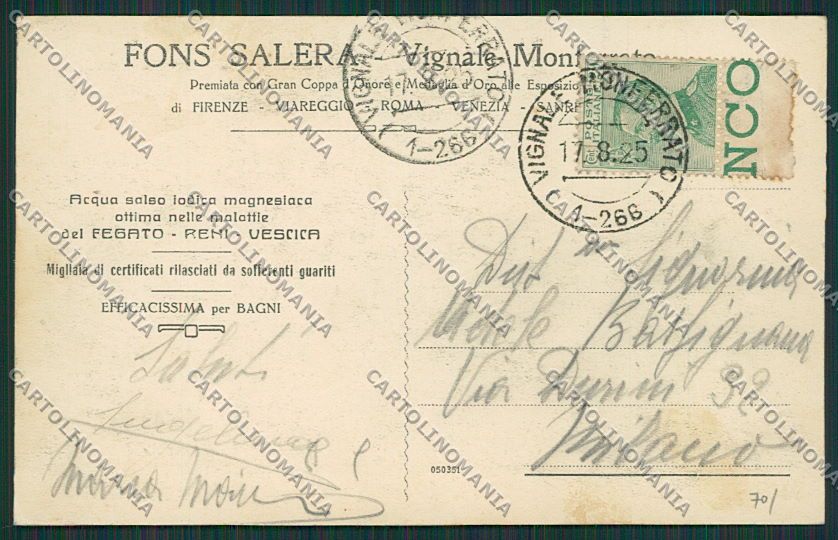 FONS SALERA - Vignale Monferrato
Premiata con Gran Coppa d'Onore e Medaglia d'Oro alle Esposizio
di FIRENZE - VIAREGGIO - ROMA - VENEZIA - SANRE
VIGNALE MONFERRATO
17.8.25
1-266
VIGNALE MONFERRATO
17.8.25
1-266
POSTE ITALIANE
NCO
Acqua salso iodica magnesiaca
ottima nelle malattie
del FEGATO - RENI - VESCICA
Migliaia di certificati rilasciati da sofferenti guariti
EFFICACISSIMA per BAGNI
Saluti
Signorina
Via Durini 32
Milano
050351
70/
CARTOLINOMANIA